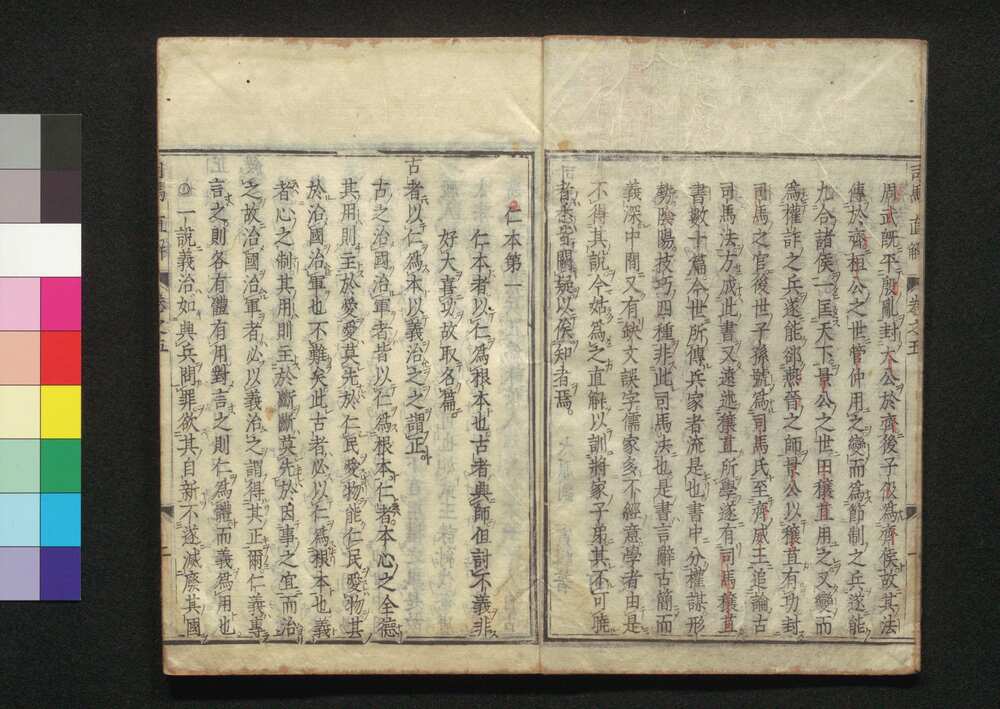 周武既平殷亂封太公於齊後子伋為齊侯故其法
傳於齊桓公之世管仲用之變而為節制之兵遂能
九合諸侯一匡天下景公之世田穰苴用之又變而
為權詐之兵遂能郤燕晉之師景公以穰苴有功封
司馬之官後世子孫號為司馬氏至齊威王追論古
司馬法方成此書又遂述穰苴所學遂有司馬穰苴
書數十篇今世所傳兵家者流是也書中分權謀形
勢陰陽技巧四種非此司馬法也是書言辭古簡而
義深中間又有缺文誤字儒家多不經意學者由是
不得其說今姑為之直解以訓將家子弟其不可曉
者悉皆闕疑以俟知者焉
仁本第一
仁本者以仁為根本也古者興師但討不義非
好大喜功故取名篇
古者以仁為本以義治之之謂正
古之治國治軍者皆以仁為根本仁者本心之全德
其用則主於愛愛莫先於仁民愛物能仁民愛物其
於治國治軍也不難矣此古者必以仁為根本也義
者心之制其用則主於斷斷莫先於因事之宜而治
之故治國治軍者必以義治之謂得其正爾仁義專
言之則各有體有用對言之則仁為體而義為用也
一說義治如興兵問罪欲其自新不遂滅廢其國
卷之五